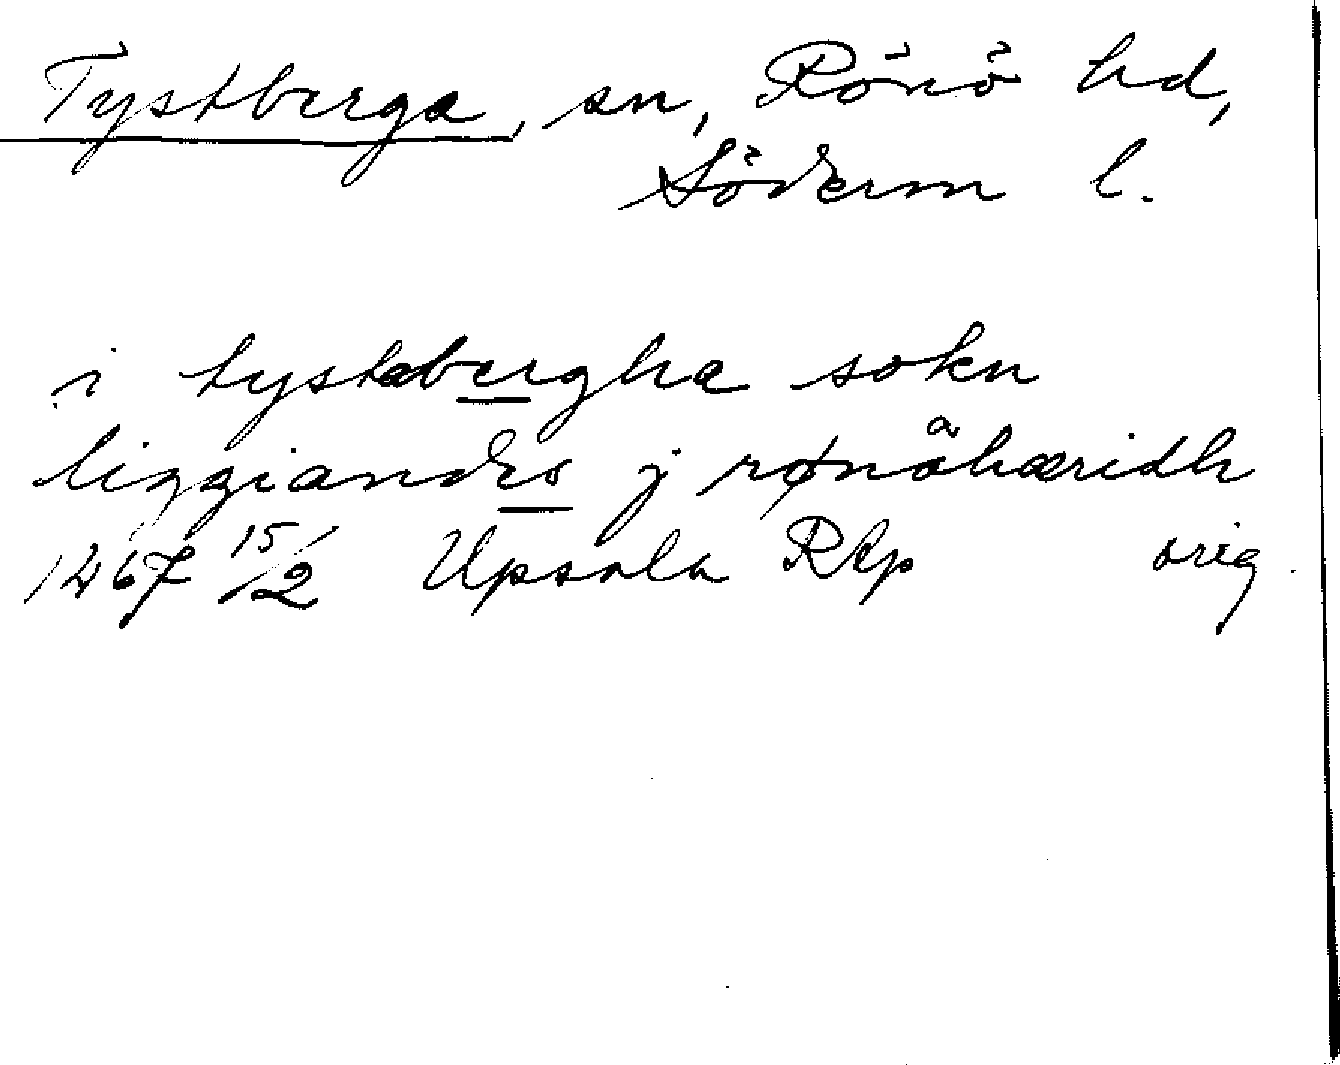 Tystberga, sn, Rönö hd,
Söderm l.
i tystabergha sokn
liggiandes j rønåhæridh
1467 15/2 Upsala RAp orig.